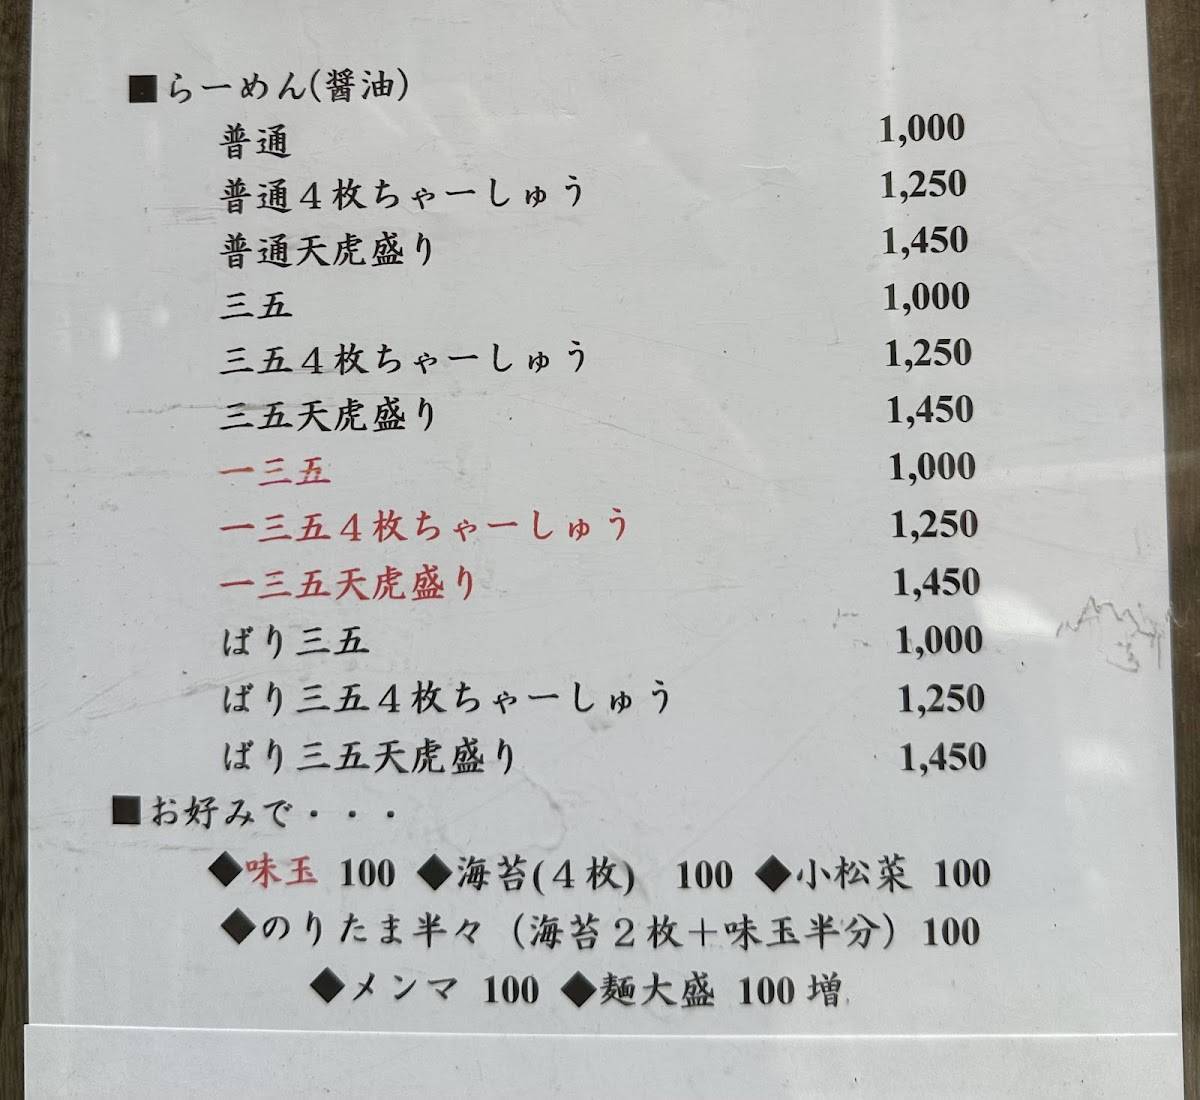 ■らーめん(醤油)
普通 1,000
普通4枚ちゃーしゅう 1,250
普通天虎盛り 1,450
三五 1,000
三五4枚ちゃーしゅう 1,250
三五天虎盛り 1,450
一三五 1,000
一三五4枚ちゃーしゅう 1,250
一三五天虎盛り 1,450
ばり三五 1,000
ばり三五4枚ちゃーしゅう 1,250
ばり三五天虎盛り 1,450
■お好みで・・・
◆味玉 100 ◆海苔(4枚) 100 ◆小松菜 100
◆のりたま半々（海苔2枚＋味玉半分）100
◆メンマ 100 ◆麺大盛 100増